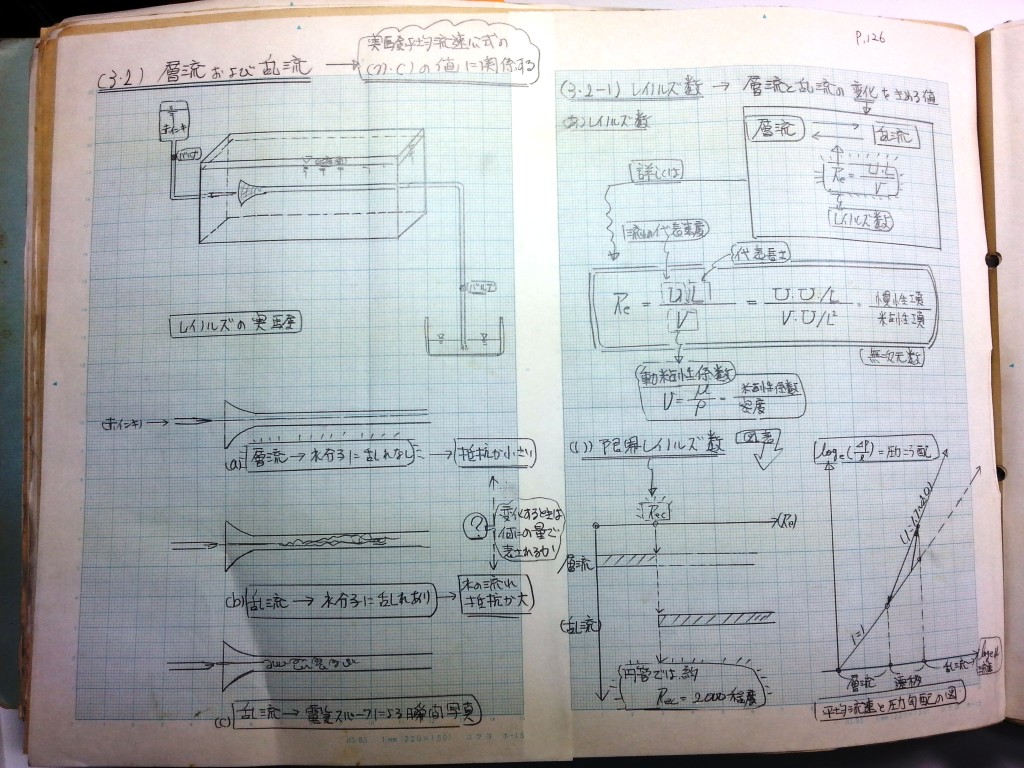 P.126
(3・2) 層流および乱流 →
実験平均流速公式の
の値に関係する
赤インキ
バルブ
バルブ
レイノルズの実験
(赤インキ)
(a) 層流 → 水分子に乱れなし → 抵抗が小さい
?
変化するときは
何の量で
表されるか!
(b) 乱流 → 水分子に乱れあり →
水の流れ
抵抗が大
(c) 乱流 → 電気スパークによる瞬間写真
(3・2-1) レイノルズ数 → 層流と乱流の変化をきめる値
(あ) レイノルズ数
層流
乱流
Re = U・L / ν
レイノルズ数
詳しくは
流れの代表速度
代表長さ
Re = U L / ν = U・U/L / ν・U/L² = 慣性項 / 粘性項
無次元数
動粘性係数
ν = μ / ρ = 粘性係数 / 密度
(い) 限界レイノルズ数
図表
Rec
(Re)
層流
(乱流)
円管では、約
Rec = 2000程度
loge(ΔP/ℓ) = 圧力こう配
1:1
層流
遷移
乱流
loge u
流速
平均流速と圧力勾配の図